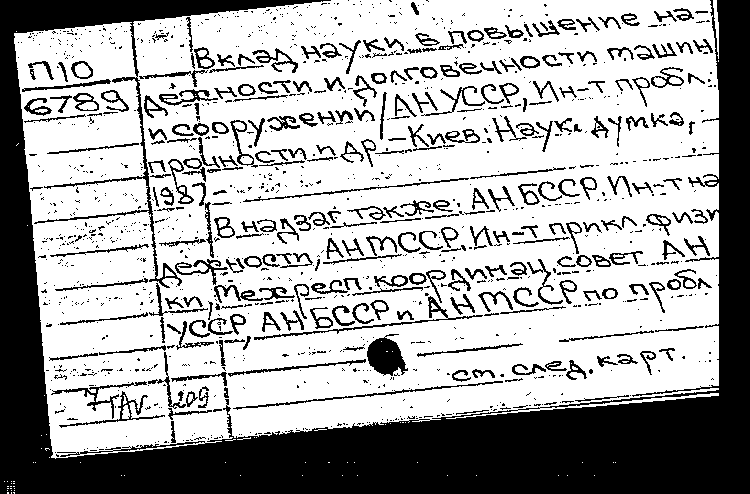 П10
6789
Вклад науки в повышение на-
дежности и долговечности машин
и сооружений / АН УССР, Ин-т пробл.
прочности и др. – Киев: Наук. думка,
1987 –
В надзаг. также: АН БССР. Ин-т на
дежности, АН МССР. Ин-т прикл. физи
ки, Межресп. координац. совет АН
УССР, АН БССР и АН МССР по пробл
см. след. карт.
209